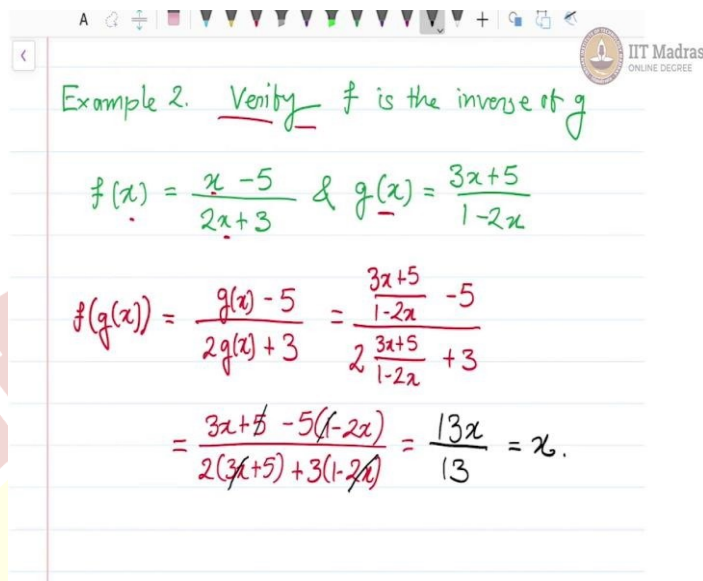 A
IIT Madras
ONLINE DEGREE
Example 2. Verify f is the inverse of g
f(x) = (x - 5)/(2x + 3) & g(x) = (3x+5)/(1-2x)
f(g(x)) = (g(x) - 5)/(2g(x) + 3) = ((3x+5)/(1-2x) - 5)/(2 (3x+5)/(1-2x) + 3)
= (3x+5 - 5(1-2x))/(2(3x+5) + 3(1-2x)) = 13x/13 = x.